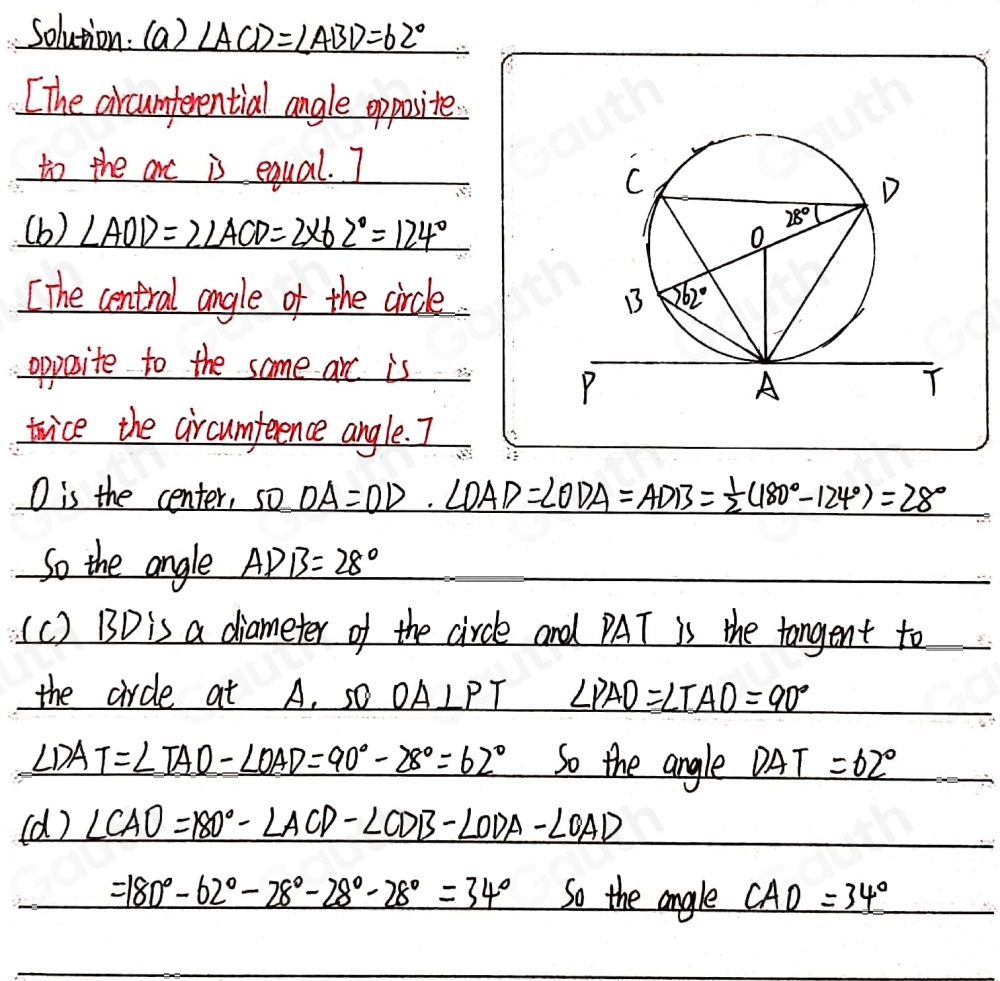 Solution: (a) ∠ACD=∠ABD=62°
[The circumferential angle opposite
to the arc is equal.]
(b) ∠AOD=2∠ACD=2×62°=124°
[The central angle of the circle
opposite to the same arc is
twice the circumference angle.]
C
D
28°
O
B
62°
P
A
T
O is the center, so OA=OD. ∠OAD=∠ODA=ADB=½(180°-124°)=28°
So the angle ADB=28°
(c) BD is a diameter of the circle and PAT is the tangent to
the circle at A, so OA⊥PT ∠PAO=∠TAO=90°
∠DAT=∠TAO-∠OAD=90°-28°=62° So the angle DAT=62°
(d) ∠CAO=180°-∠ACD-∠CDB-∠ODA-∠OAD
=180°-62°-28°-28°-28°=34° So the angle CAO=34°